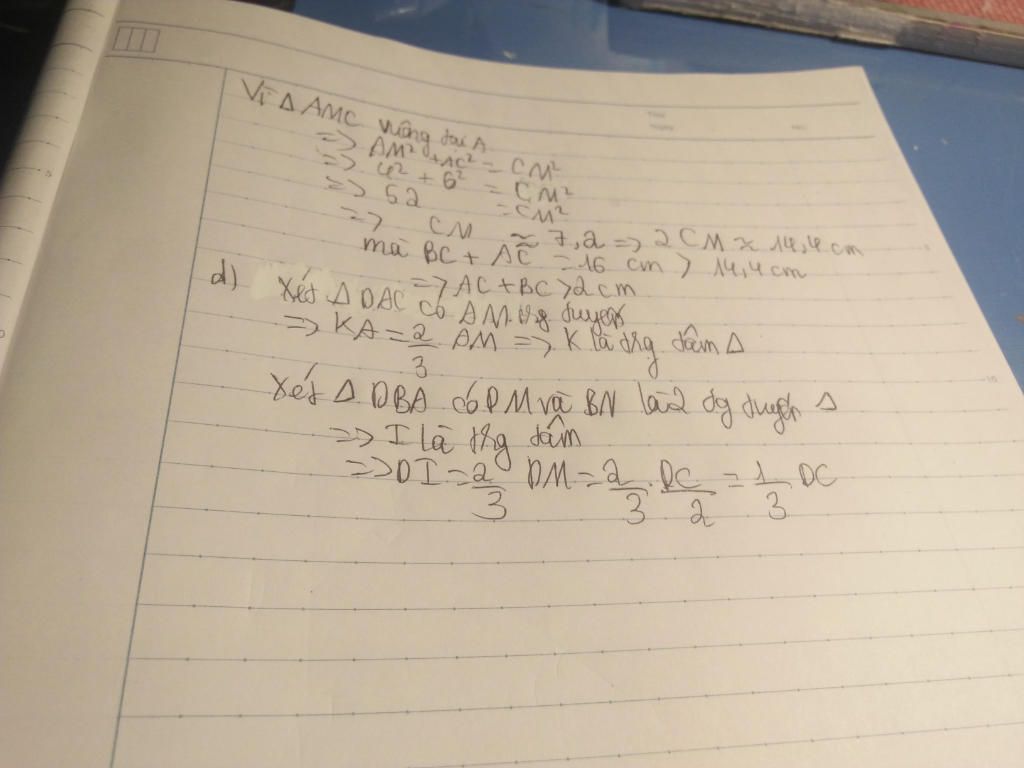 Vì Δ AMC vuông tại A
=> AM² + AC² = CM²
=> 4² + 6² = CM²
=> 52 = CM²
=> CM ≈ 7,2 => 2 CM ≈ 14,4 cm
mà BC + AC = 16 cm > 14,4 cm
=> AC + BC > 2 cm
d) Xét Δ DAC có AM trg tuyến
=> KA = 2/3 AM => K là trg tâm Δ
Xét Δ DBA có DM và BN là 2 đg tuyến Δ
=> I là trg tâm
=> DI = 2/3 DM = 2/3 . DC/2 = 1/3 DC